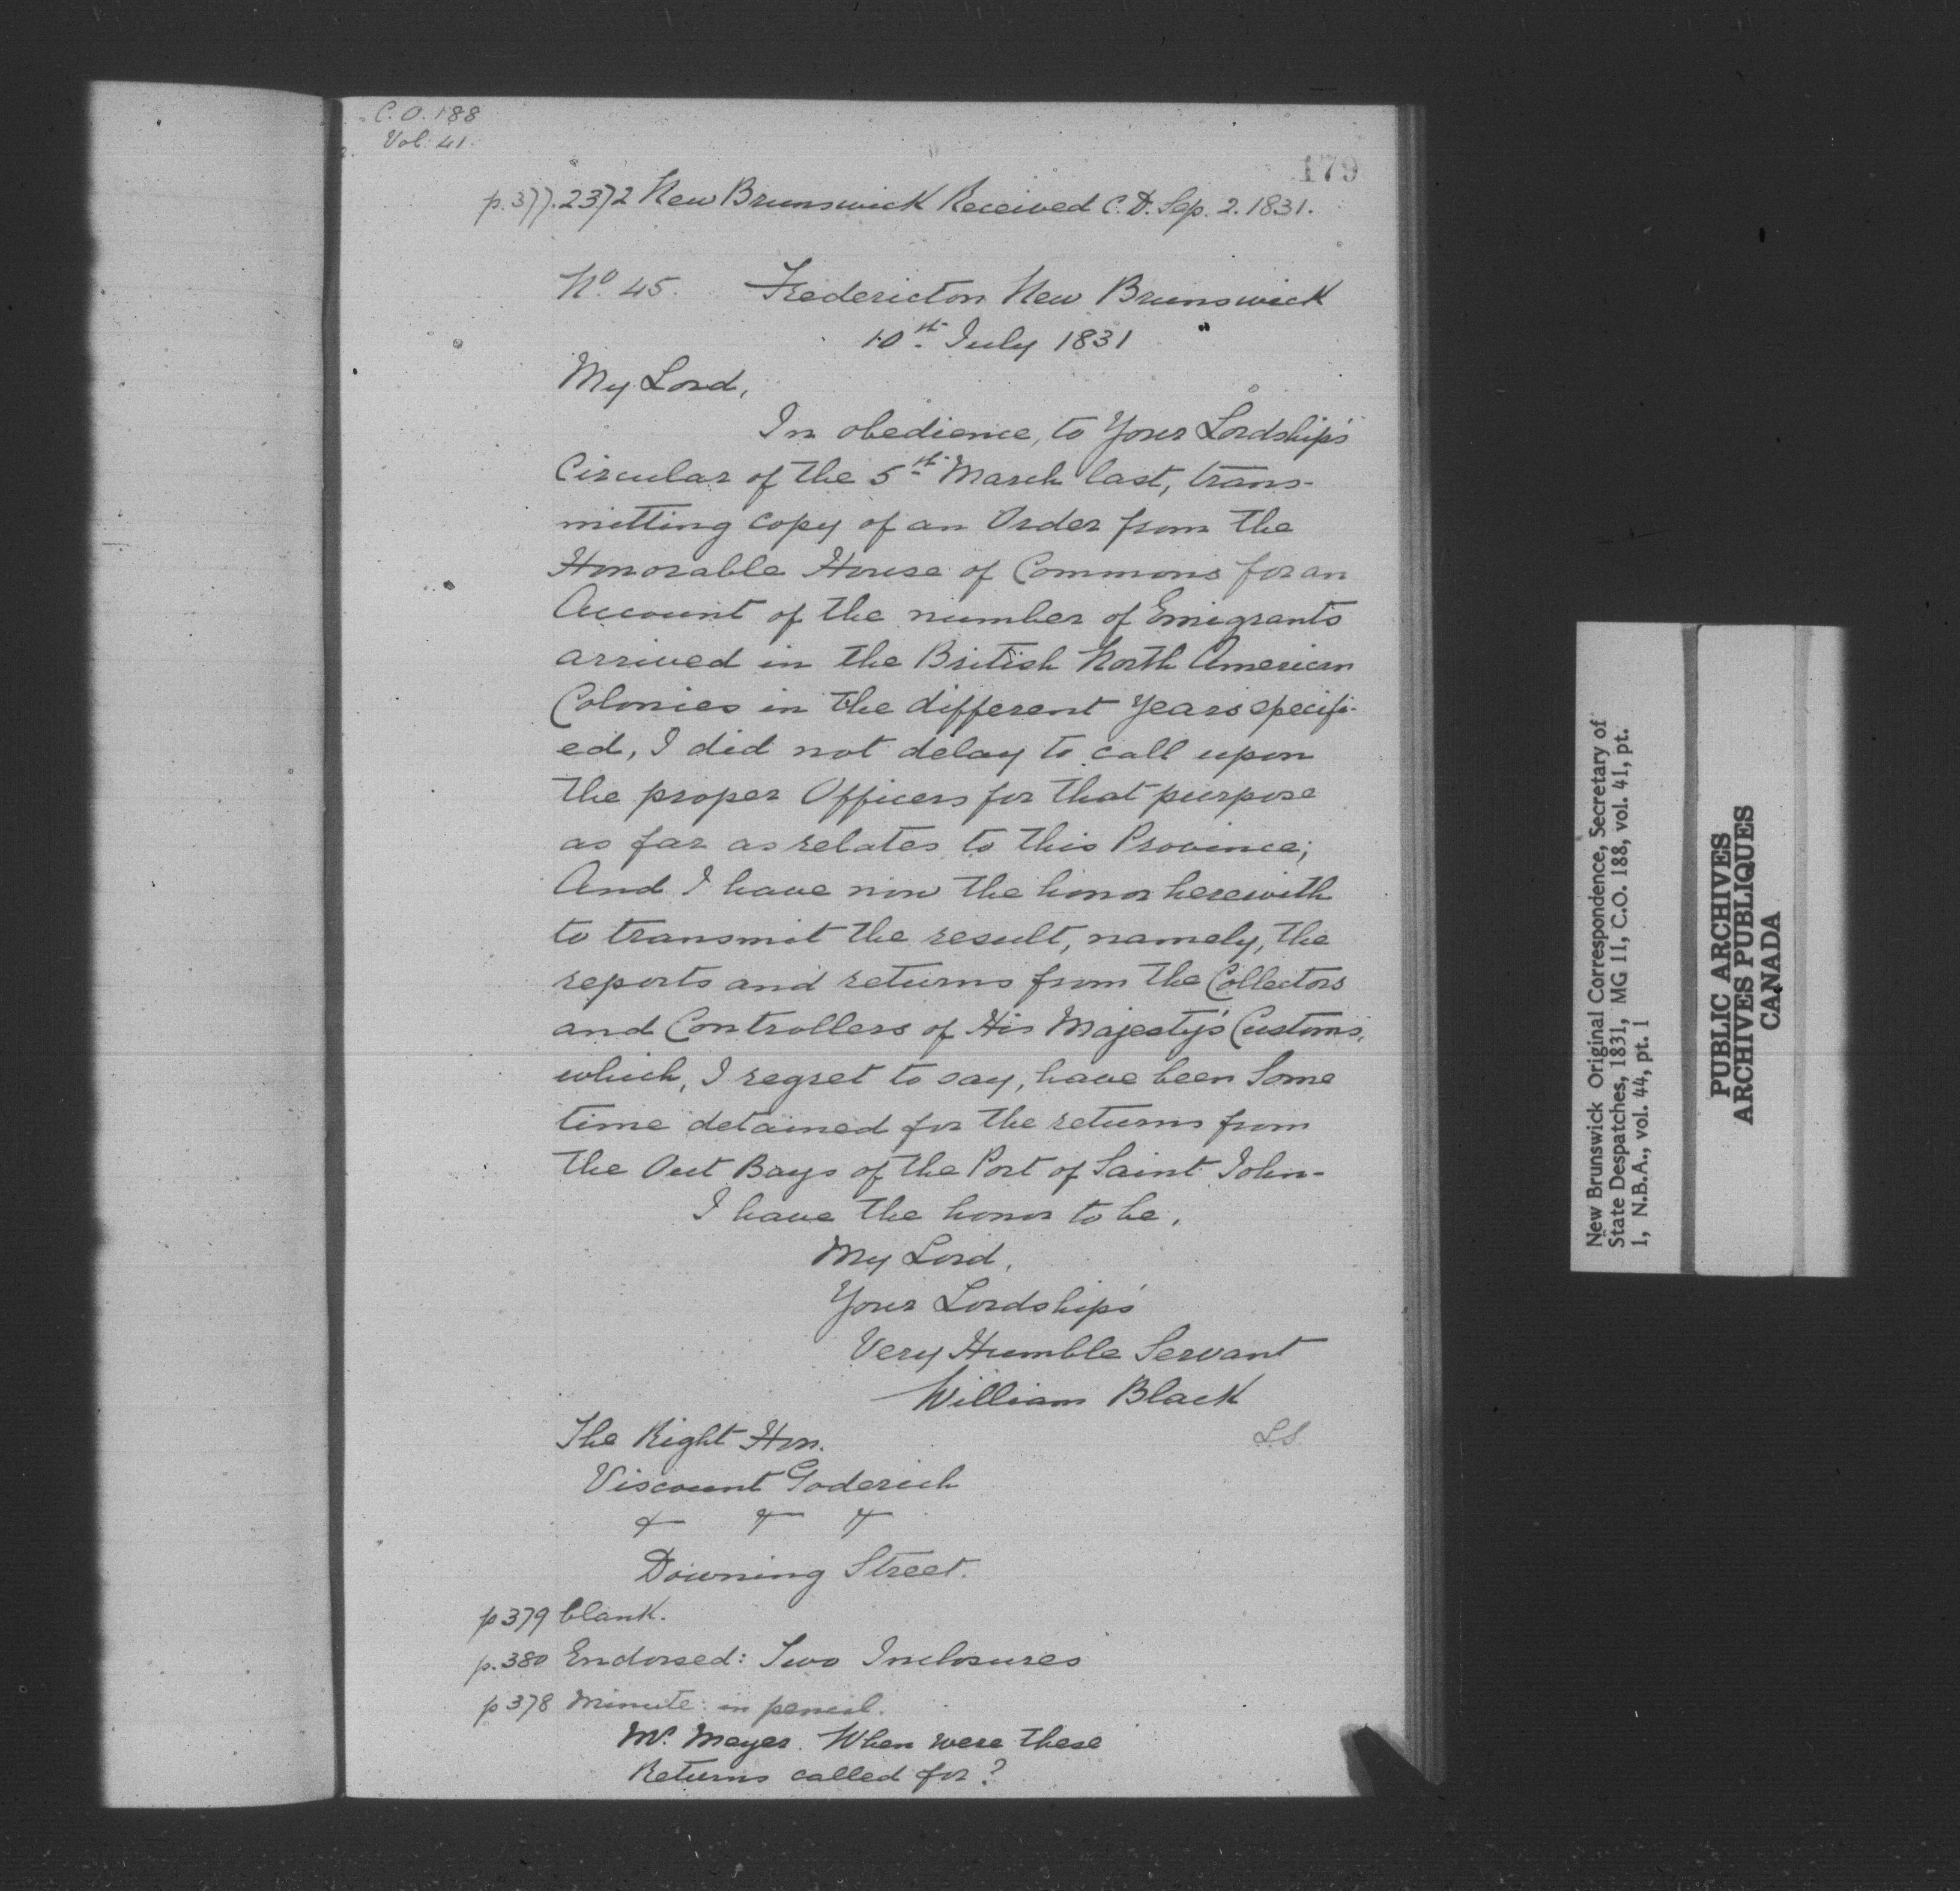 C.O. 188
Vol. 41.
179
p. 377. 2372 New Brunswick Received C.D. Sep. 2. 1831.
No. 45. Fredericton New Brunswick
10th July 1831
My Lord,
In obedience, to Your Lordship's
Circular of the 5th March last, trans-
mitting copy of an Order from the
Honorable House of Commons for an
Account of the number of Emigrants
arrived in the British North American
Colonies in the different Years specifi-
ed, I did not delay to call upon
the proper Officers for that purpose
as far as relates to this Province;
And I have now the honor herewith
to transmit the result, namely, the
reports and returns from the Collectors
and Controllers of His Majesty's Customs,
which, I regret to say, have been Some
time detained for the returns from
the Out Bays of the Port of Saint John-
I have the honor to be,
My Lord,
Your Lordships'
Very Humble Servant
William Black
The Right Hon. LS
Viscount Goderich
& & &
Downing Street.
p379 blank.
p. 380 Endorsed: Two Inclosures
p378 Minute: in pencil.
Mr. Mayer. When were these
Returns called for?
New Brunswick Original Correspondence, Secretary of
State Despatches, 1831, MG 11, C.O. 188, vol. 41, pt.
1, N.B.A., vol. 44, pt. 1
PUBLIC ARCHIVES
ARCHIVES PUBLIQUES
CANADA